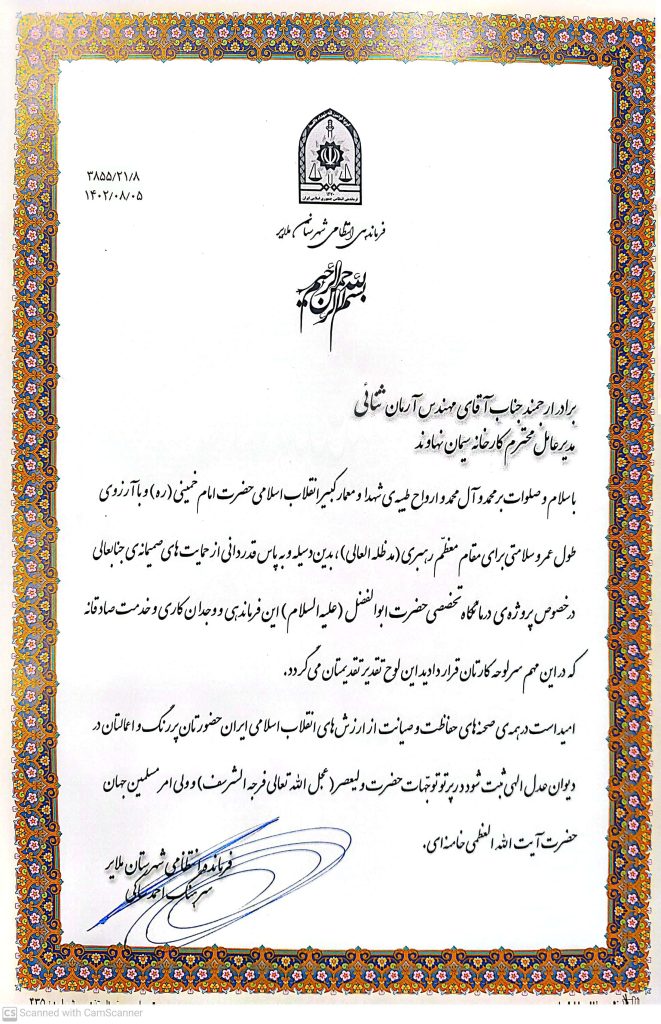 ۳۸۵۵/۲۱/۸
۱۴۰۲/۰۸/۰۵
فرماندهی انتظامی شهرستان ملایر
بسم الله الرحمن الرحیم
برادر ارجمند جناب آقای مهندس آرمان ثنائی
مدیرعامل محترم کارخانه سیمان نهاوند
با سلام و صلوات بر محمد و آل محمد و ارواح طیبه‌ی شهدا و معمار کبیر انقلاب اسلامی حضرت امام خمینی (ره) و با آرزوی
طول عمر و سلامتی برای مقام معظّم رهبری (مدظله العالی)، بدین وسیله و به پاس قدردانی از حمایت های صمیمانه‌ی جنابعالی
در خصوص پروژه‌ی درمانگاه تخصصی حضرت ابوالفضل (علیه السلام) این فرماندهی و وجدان کاری و خدمت صادقانه
که در این مهم سرلوحه کارتان قرار دادید این لوح تقدیر تقدیمتان می گردد.
امید است در همه‌ی صحنه های حفاظت و صیانت از ارزش های انقلاب اسلامی ایران حضورتان پررنگ و اعمالتان در
دیوان عدل الهی ثبت شود در پرتو توجّهات حضرت ولیعصر (عجل الله تعالی فرجه الشریف) و ولی امر مسلمین جهان
حضرت آیت الله العظمی خامنه‌ای.
فرمانده انتظامی شهرستان ملایر
سرهنگ احمد ساکی
CS Scanned with CamScanner